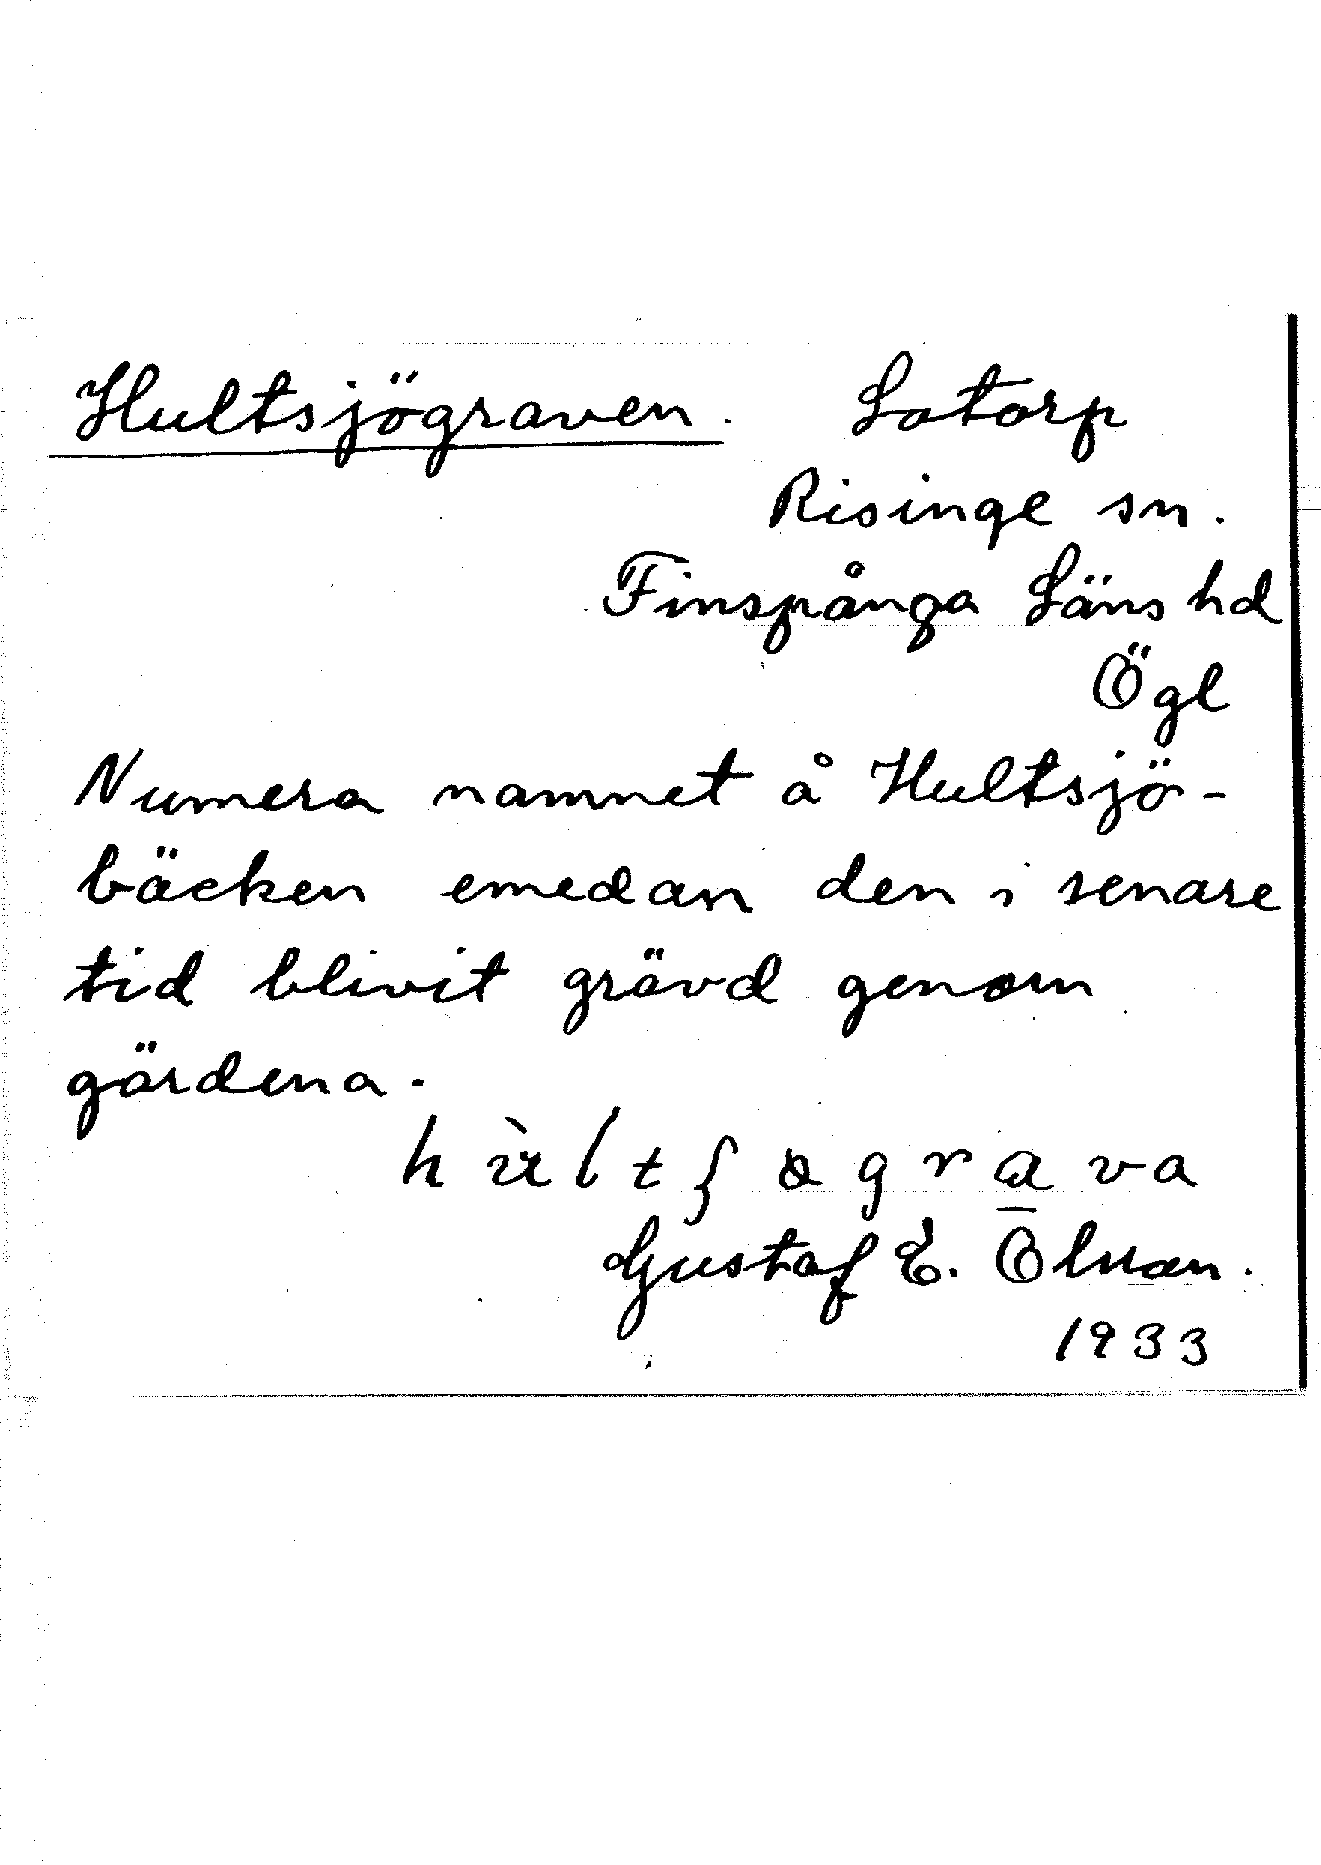 Hultsjögraven. Lotorp
Risinge sn.
Finspånga Läns hd
Ögl
Numera namnet å Hultsjö-
bäcken emedan den i senare
tid blivit grävd genom
gärdena.
Gustaf E. Olsson.
1933